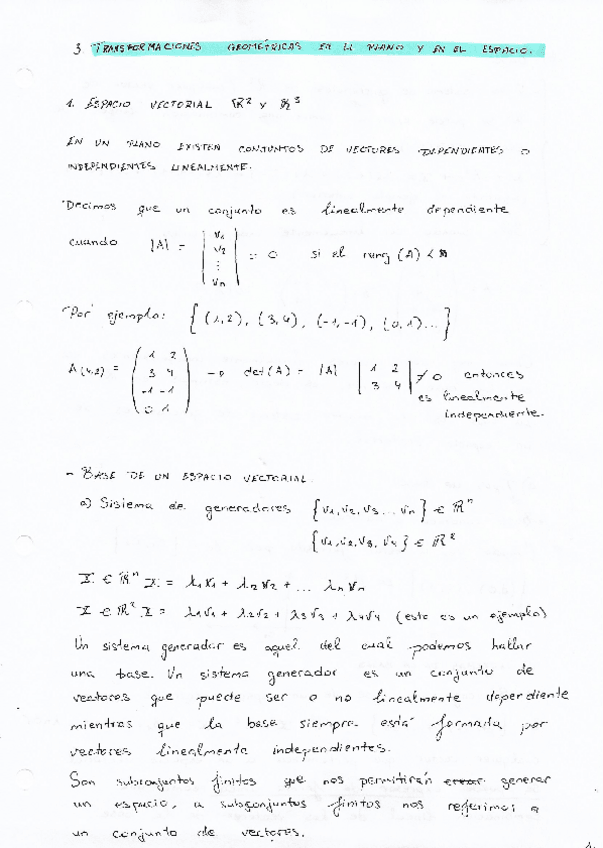 3 TRANSFORMACIONES GEOMÉTRICAS EN EL PLANO Y EN EL ESPACIO.
1. ESPACIO VECTORIAL ℝ² y ℝ³
EN UN PLANO EXISTEN CONJUNTOS DE VECTORES DEPENDIENTES O
INDEPENDIENTES LINEALMENTE.
Decimos que un conjunto es linealmente dependiente
cuando |A| = | v1 v2 ⋮ vn | = 0 si el rang (A) <
Por ejemplo: { (1,2), (3,4), (-1,-1), (0,1)... }
A(4,2) = ( 1 2 ; 3 4 ; -1 -1 ; 0 1 ) → det(A) = |A| | 1 2 ; 3 4 | ≠ 0 entonces
es linealmente
independiente.
- BASE DE UN ESPACIO VECTORIAL
a) Sistema de generadores {v1, v2, v3 ... vn} ∈ ℝⁿ
{v1, v2, v3, v4} ∈ ℝ²
X ∈ ℝⁿ X = λ1v1 + λ2v2 + ... λnvn
X ∈ ℝ² X = λ1v1 + λ2v2 + λ3v3 + λ4v4 (esto es un ejemplo)
Un sistema generador es aquel del cual podemos hallar
una base. Un sistema generador es un conjunto de
vectores que puede ser o no linealmente dependiente
mientras que la base siempre está formada por
vectores linealmente independientes.
Son subconjuntos finitos que nos permitirán generar
un espacio, a subconjuntos finitos nos referimos a
un conjunto de vectores.